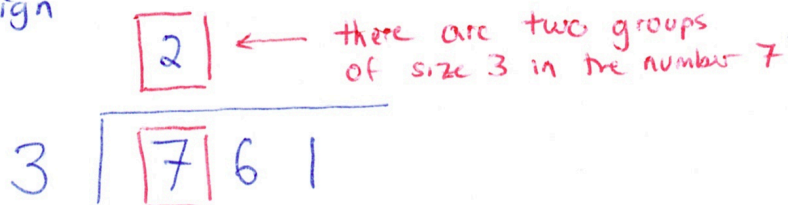 ign
2 ← there are two groups
of size 3 in the number 7
3 7 6 1